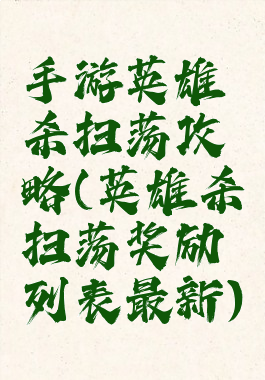 手游英雄
杀扫荡攻
略(英雄杀
扫荡奖励
列表最新)